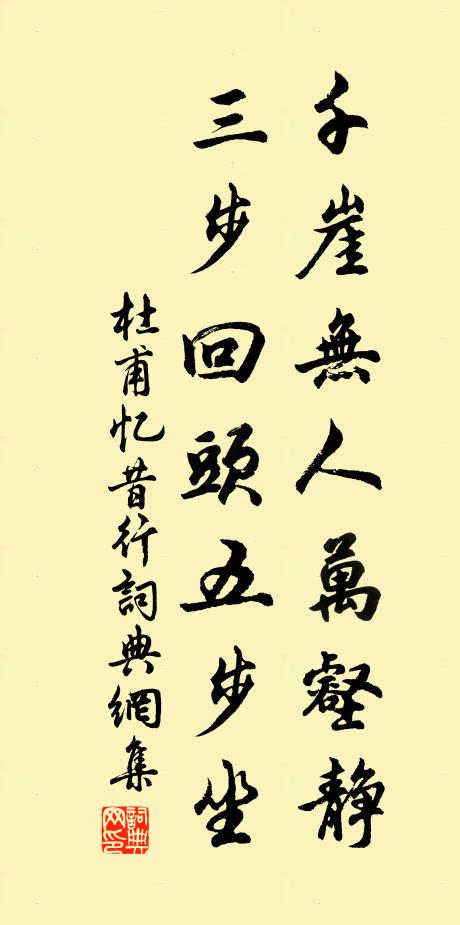 千崖無人萬壑静
三步回頭五步坐
杜甫忆昔行詞典網集
詞典
网印